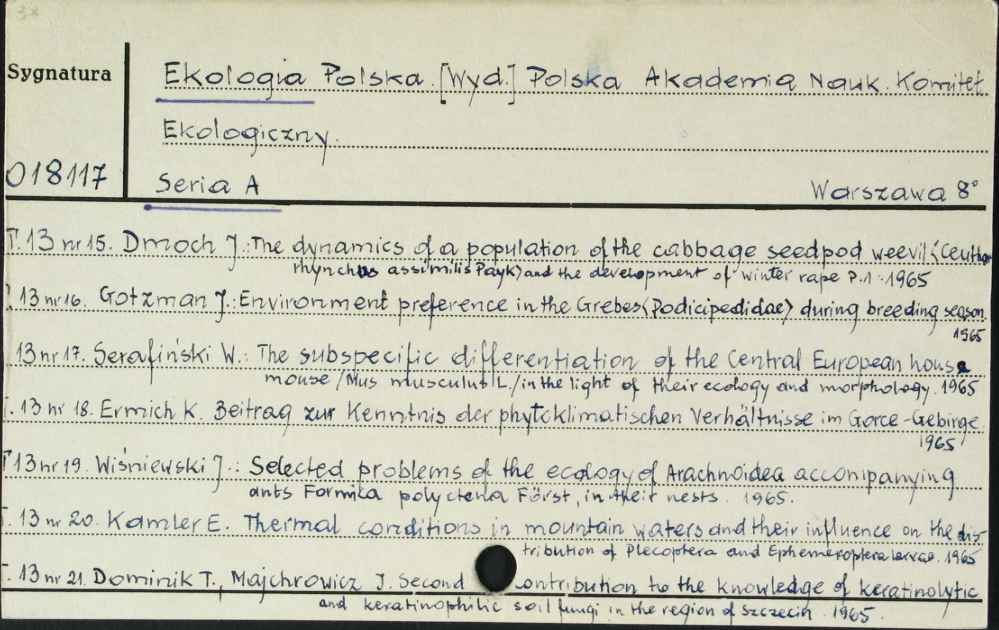 Sygnatura
Ekologia Polska. [Wyd.] Polska Akademia Nauk. Komitet
Ekologiczny.
018117
Seria A
Warszawa 8°
T. 13 nr 15. Dmoch J.: The dynamics of a population of the cabbage seedpod weevil <Ceutho
rhynchus assimilis Payk> and the development of winter rape P.1. 1965
13 nr 16. Gotzman J.: Environment preference in the Grebes <Podicipedidae> during breeding season.
1965
13 nr 17. Serafiński W.: The subspecific differentiation of the Central European house
mouse /Mus musculus L./ in the light of their ecology and morphology. 1965
T. 13 nr 18. Ermich K. Beitrag zur Kenntnis der phytoklimatischen Verhältnisse im Gorce-Gebirge.
1965
T 13 nr 19. Wiśniewski J.: Selected problems of the ecology of Arachnoidea accompanying
ants Formica polyctena Först, in their nests. 1965.
T. 13 nr 20. Kamler E. Thermal conditions in mountain waters and their influence on the dis-
tribution of Plecoptera and Ephemeroptera larvae. 1965
T. 13 nr 21. Dominik T., Majchrowicz J. Second contribution to the knowledge of keratinolytic
and keratinophilic soil fungi in the region of Szczecin. 1965.